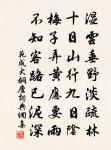 湿雲垂野淡疏林
十日山行九日陰
梅子弄黃應要雨
不知客路已泥深
范成大桐廬